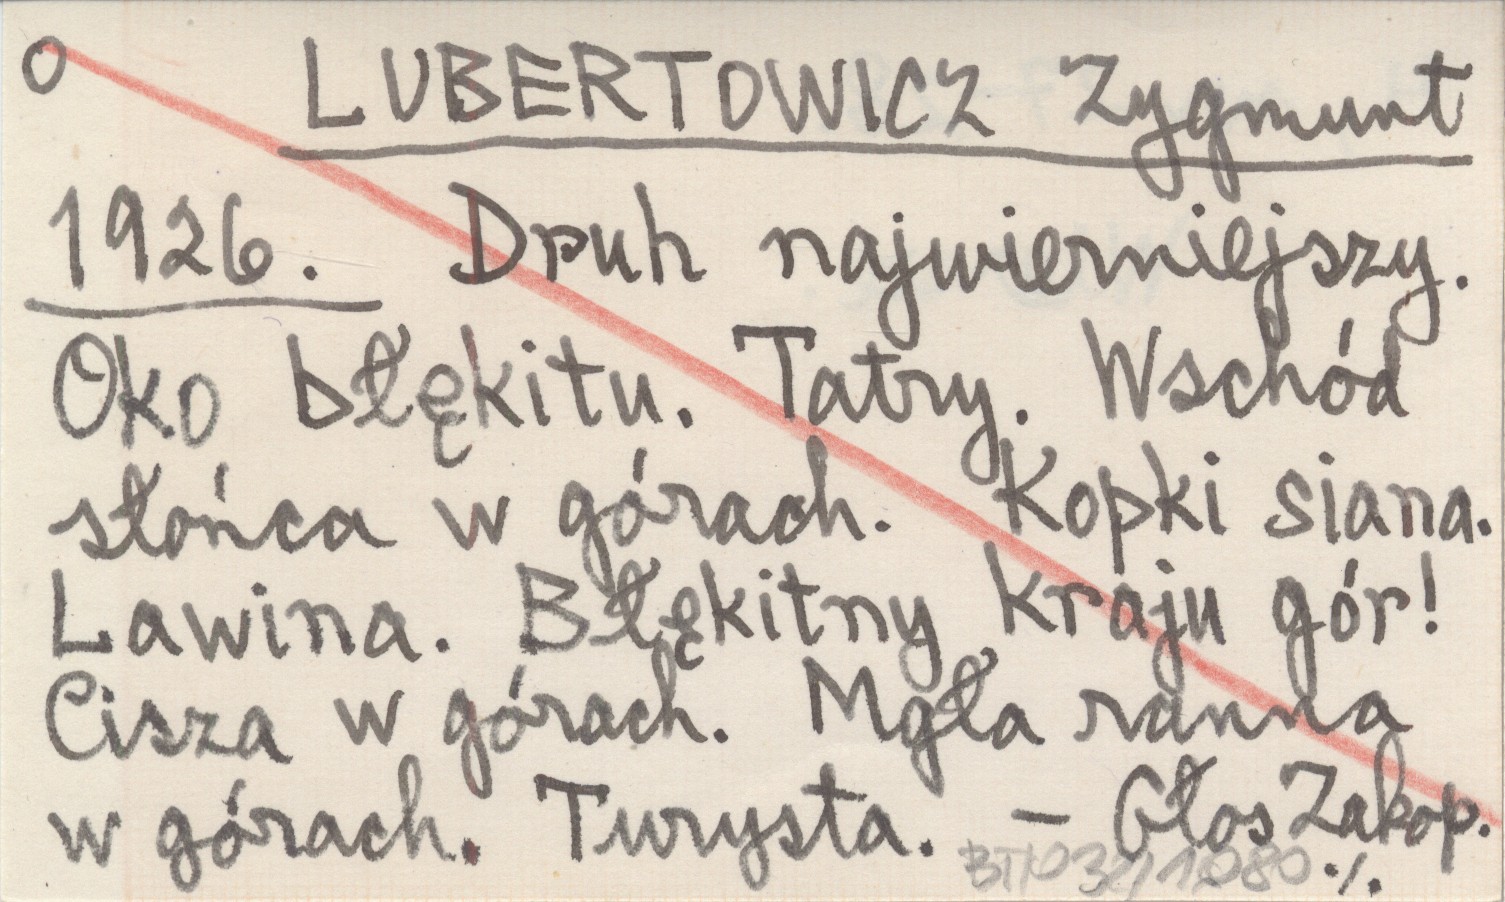 O LUBERTOWICZ Zygmunt
1926. Druh najwierniejszy.
Oko błękitu. Tatry. Wschód
słońca w górach. Kopki siana.
Lawina. Błękitny kraju gór!
Cisza w górach. Mgła ranna
w górach. Turysta. – Głos Zakop.
./.